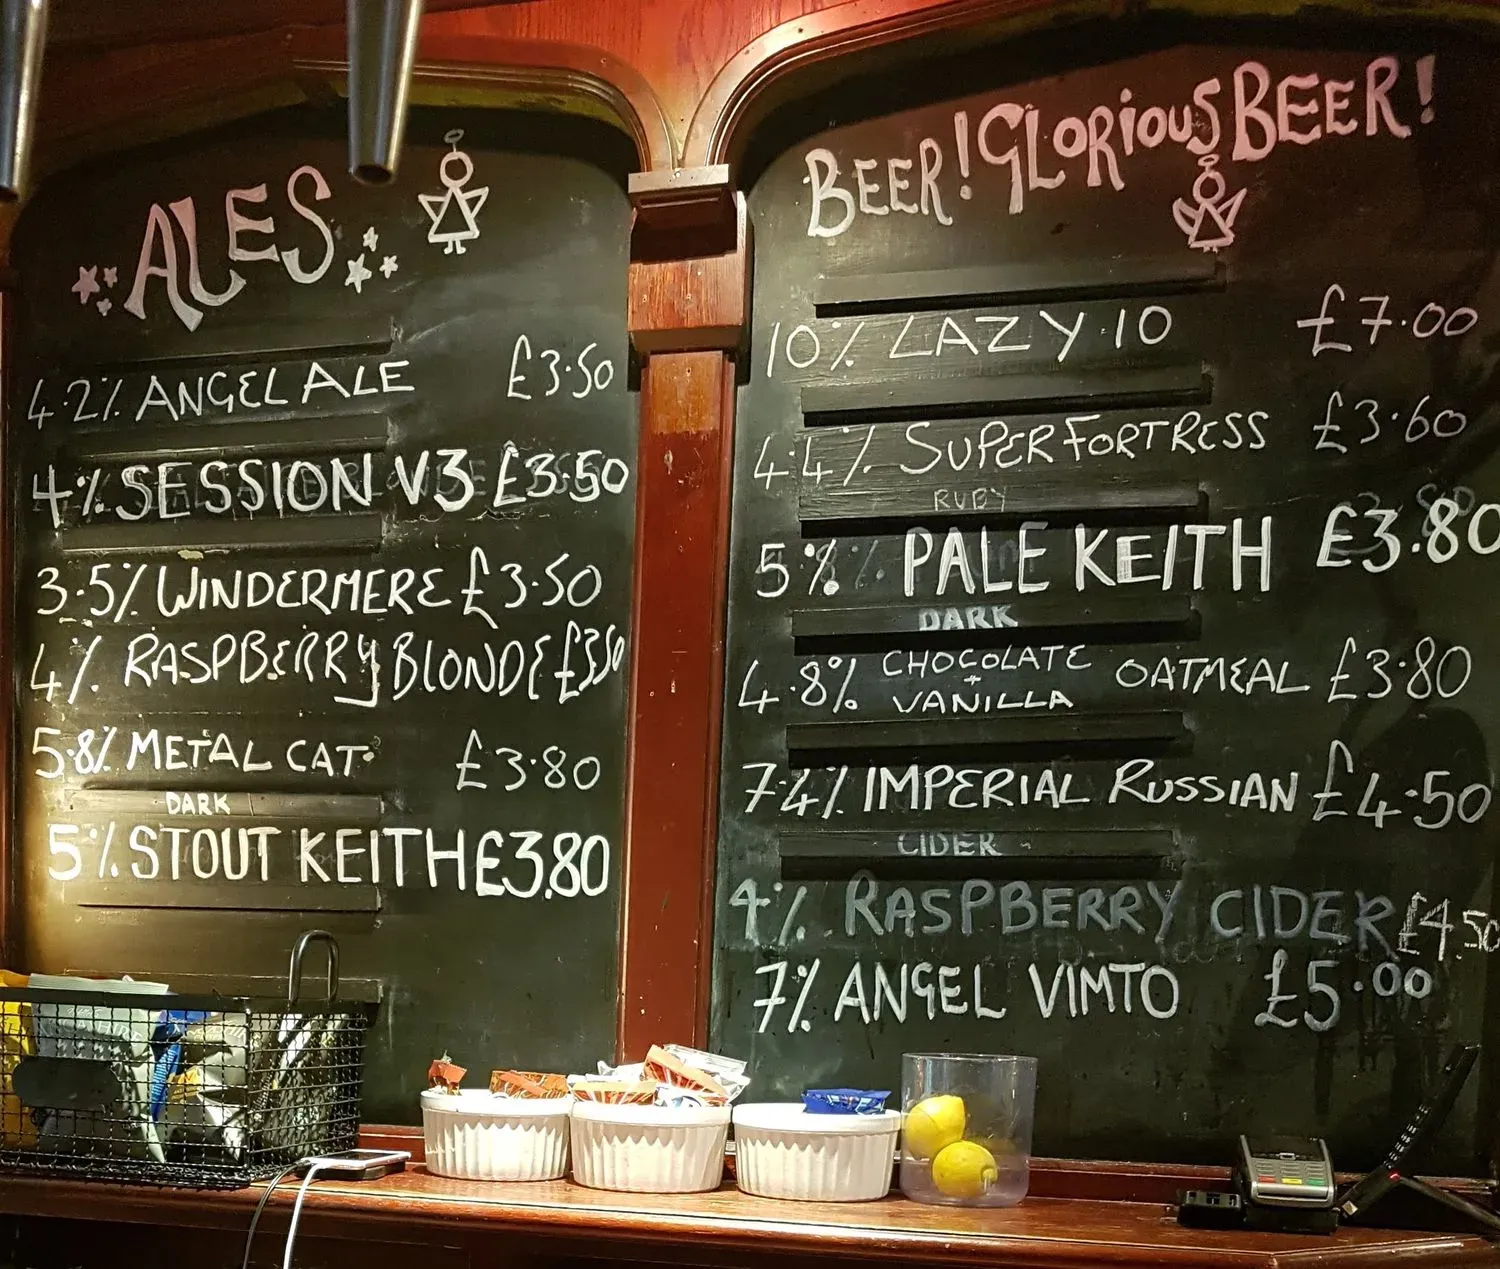 ALES
4.2% ANGEL ALE £3.50
4% SESSION V3 £3.50
3.5% WINDERMERE £3.50
4% RASPBERRY BLONDE £3.50
5.8% METAL CAT £3.80
DARK
5% STOUT KEITH £3.80
BEER! GLORIOUS BEER!
10% LAZY 10 £7.00
4.4% SUPER FORTRESS £3.60
RUBY
5% PALE KEITH £3.80
DARK
4.8% CHOCOLATE + VANILLA OATMEAL £3.80
7.4% IMPERIAL RUSSIAN £4.50
CIDER
4% RASPBERRY CIDER £4.50
7% ANGEL VIMTO £5.00